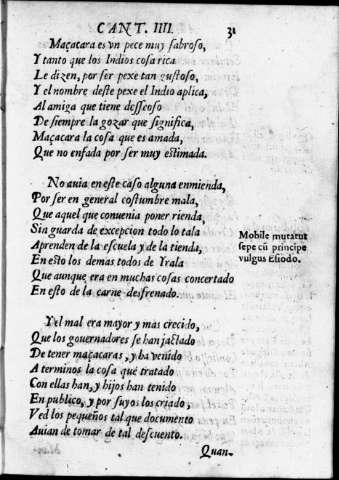 CANT. IIII. 31
Maçacara es vn pece muy sabroso,
Y tanto que los Indios cosa rica
Le dizen, por ser pexe tan gustoso,
Y el nombre deste pexe el Indio aplica,
Al amiga que tiene desseoso
De siempre la gozar que significa,
Maçacara la cosa que es amada,
Que no enfada por ser muy estimada.
No auia en este caso alguna enmienda,
Por ser en general costumbre mala,
Que aquel que conuenia poner rienda,
Sia guarda de excepcion todo lo tala
Aprenden de la escuela y de la tienda,
En esto los demas todos de Yrala
Que aunque era en muchas cosas concertado
En esto de la carne desfrenado.
Mobile mutatut
sepe cũ principe
vulgus Esiodo.
Y el mal era mayor y mas crecido,
Que los gouernadores se han jactado
De tener maçacaras, y ha venido
A terminos la cosa que tratado
Con ellas han, y hijos han tenido
En publico, y por suyos los criado,
Ved los pequeños tal que documento
Auian de tomar de tal descuento.
Quan-